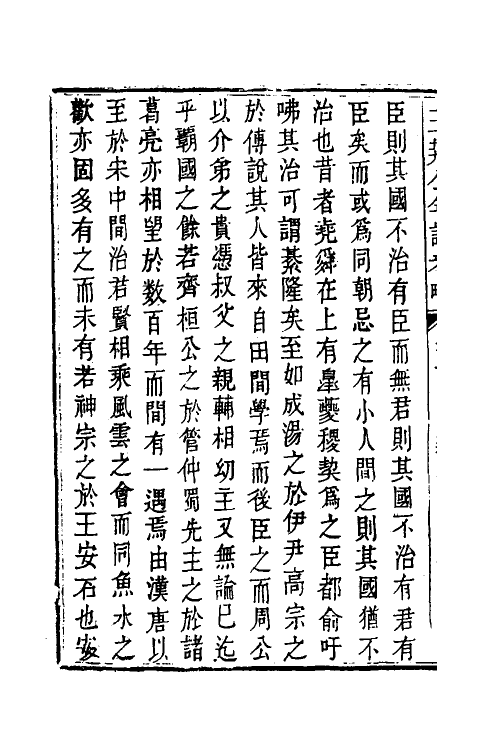 臣則其國不治有臣而無君則其國不治有君有
臣矣而或爲同朝忌之有小人間之則其國猶不
治也昔者堯舜在上有皐夔稷契爲之臣都俞吁
咈其治可謂綦隆矣至如成湯之於伊尹高宗之
於傅說其人皆來自田間學焉而後臣之而周公
以介弟之貴憑叔父之親輔相幼主又無論已迄
乎霸國之餘若齊桓公之於管仲蜀先主之於諸
葛亮亦相望於数百年而間有一遇焉由漢唐以
至於宋中間治君賢相乘風雲之會而同魚水之
歡亦固多有之而未有若神宗之於王安石也安